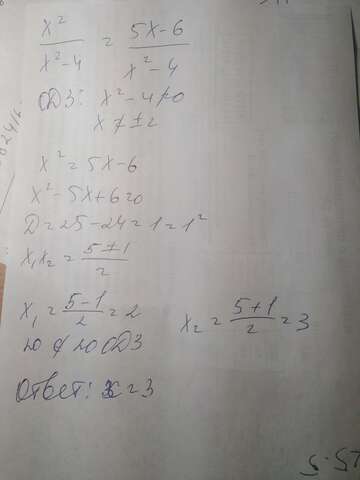 x² / x²-4 = 5x-6 / x²-4
ОДЗ: x²-4≠0
x ≠ ±2
x² = 5x-6
x²-5x+6=0
D=25-24=1=1²
x₁x₂ = 5±1 / 2
x₁ = 5-1 / 2 = 2
x₂ = 5+1 / 2 = 3
ОДЗ
Ответ: x=3